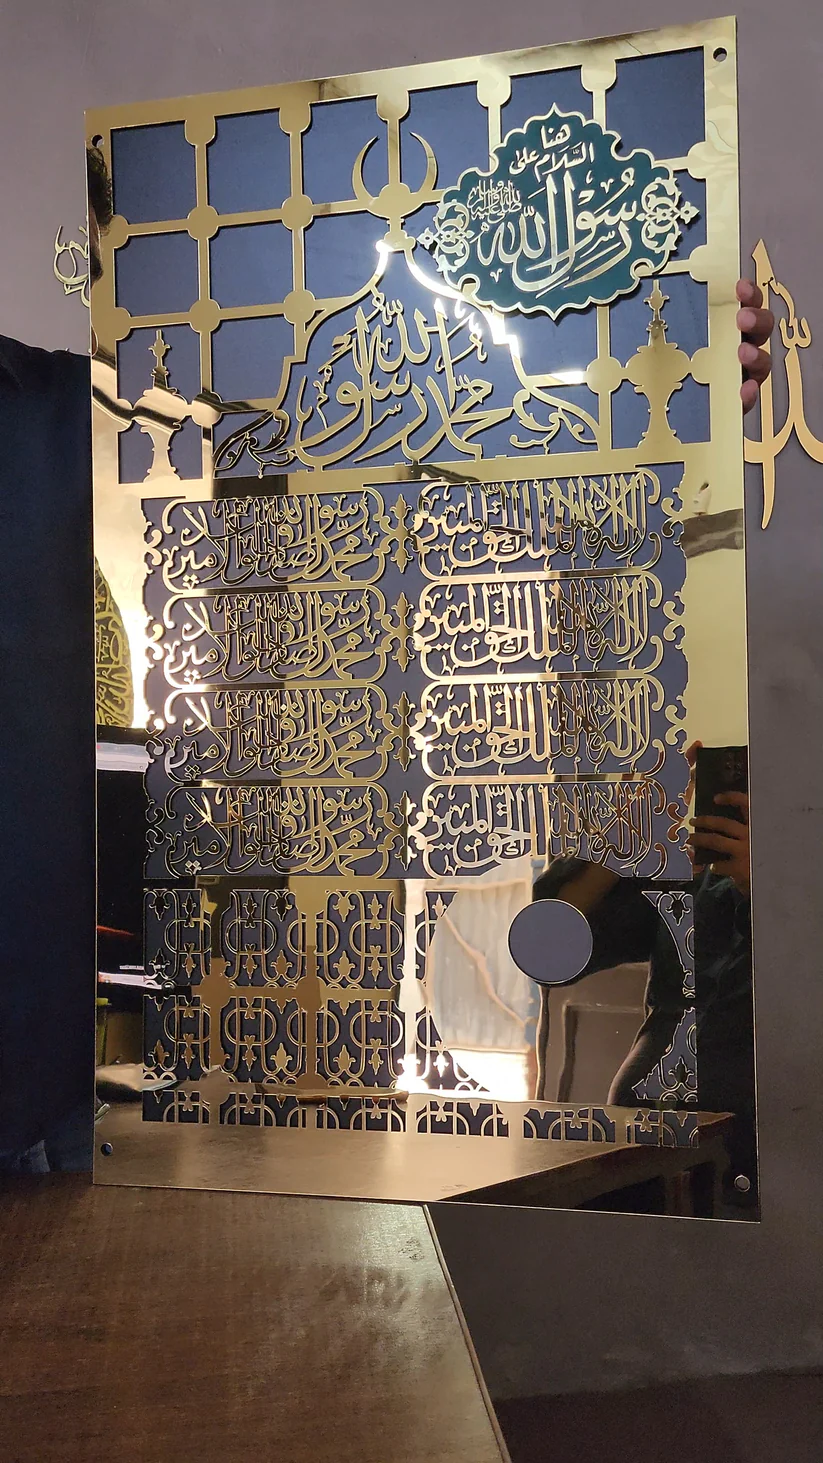 هنا
السَّلام على
رسُول الله ﷺ
محمد رسول الله
لا اله الا الله الملك الحق المبين
محمد رسول الله الصادق الوعد الامين
لا اله الا الله الملك الحق المبين
محمد رسول الله الصادق الوعد الامين
لا اله الا الله الملك الحق المبين
محمد رسول الله الصادق الوعد الامين
لا اله الا الله الملك الحق المبين
محمد رسول الله الصادق الوعد الامين